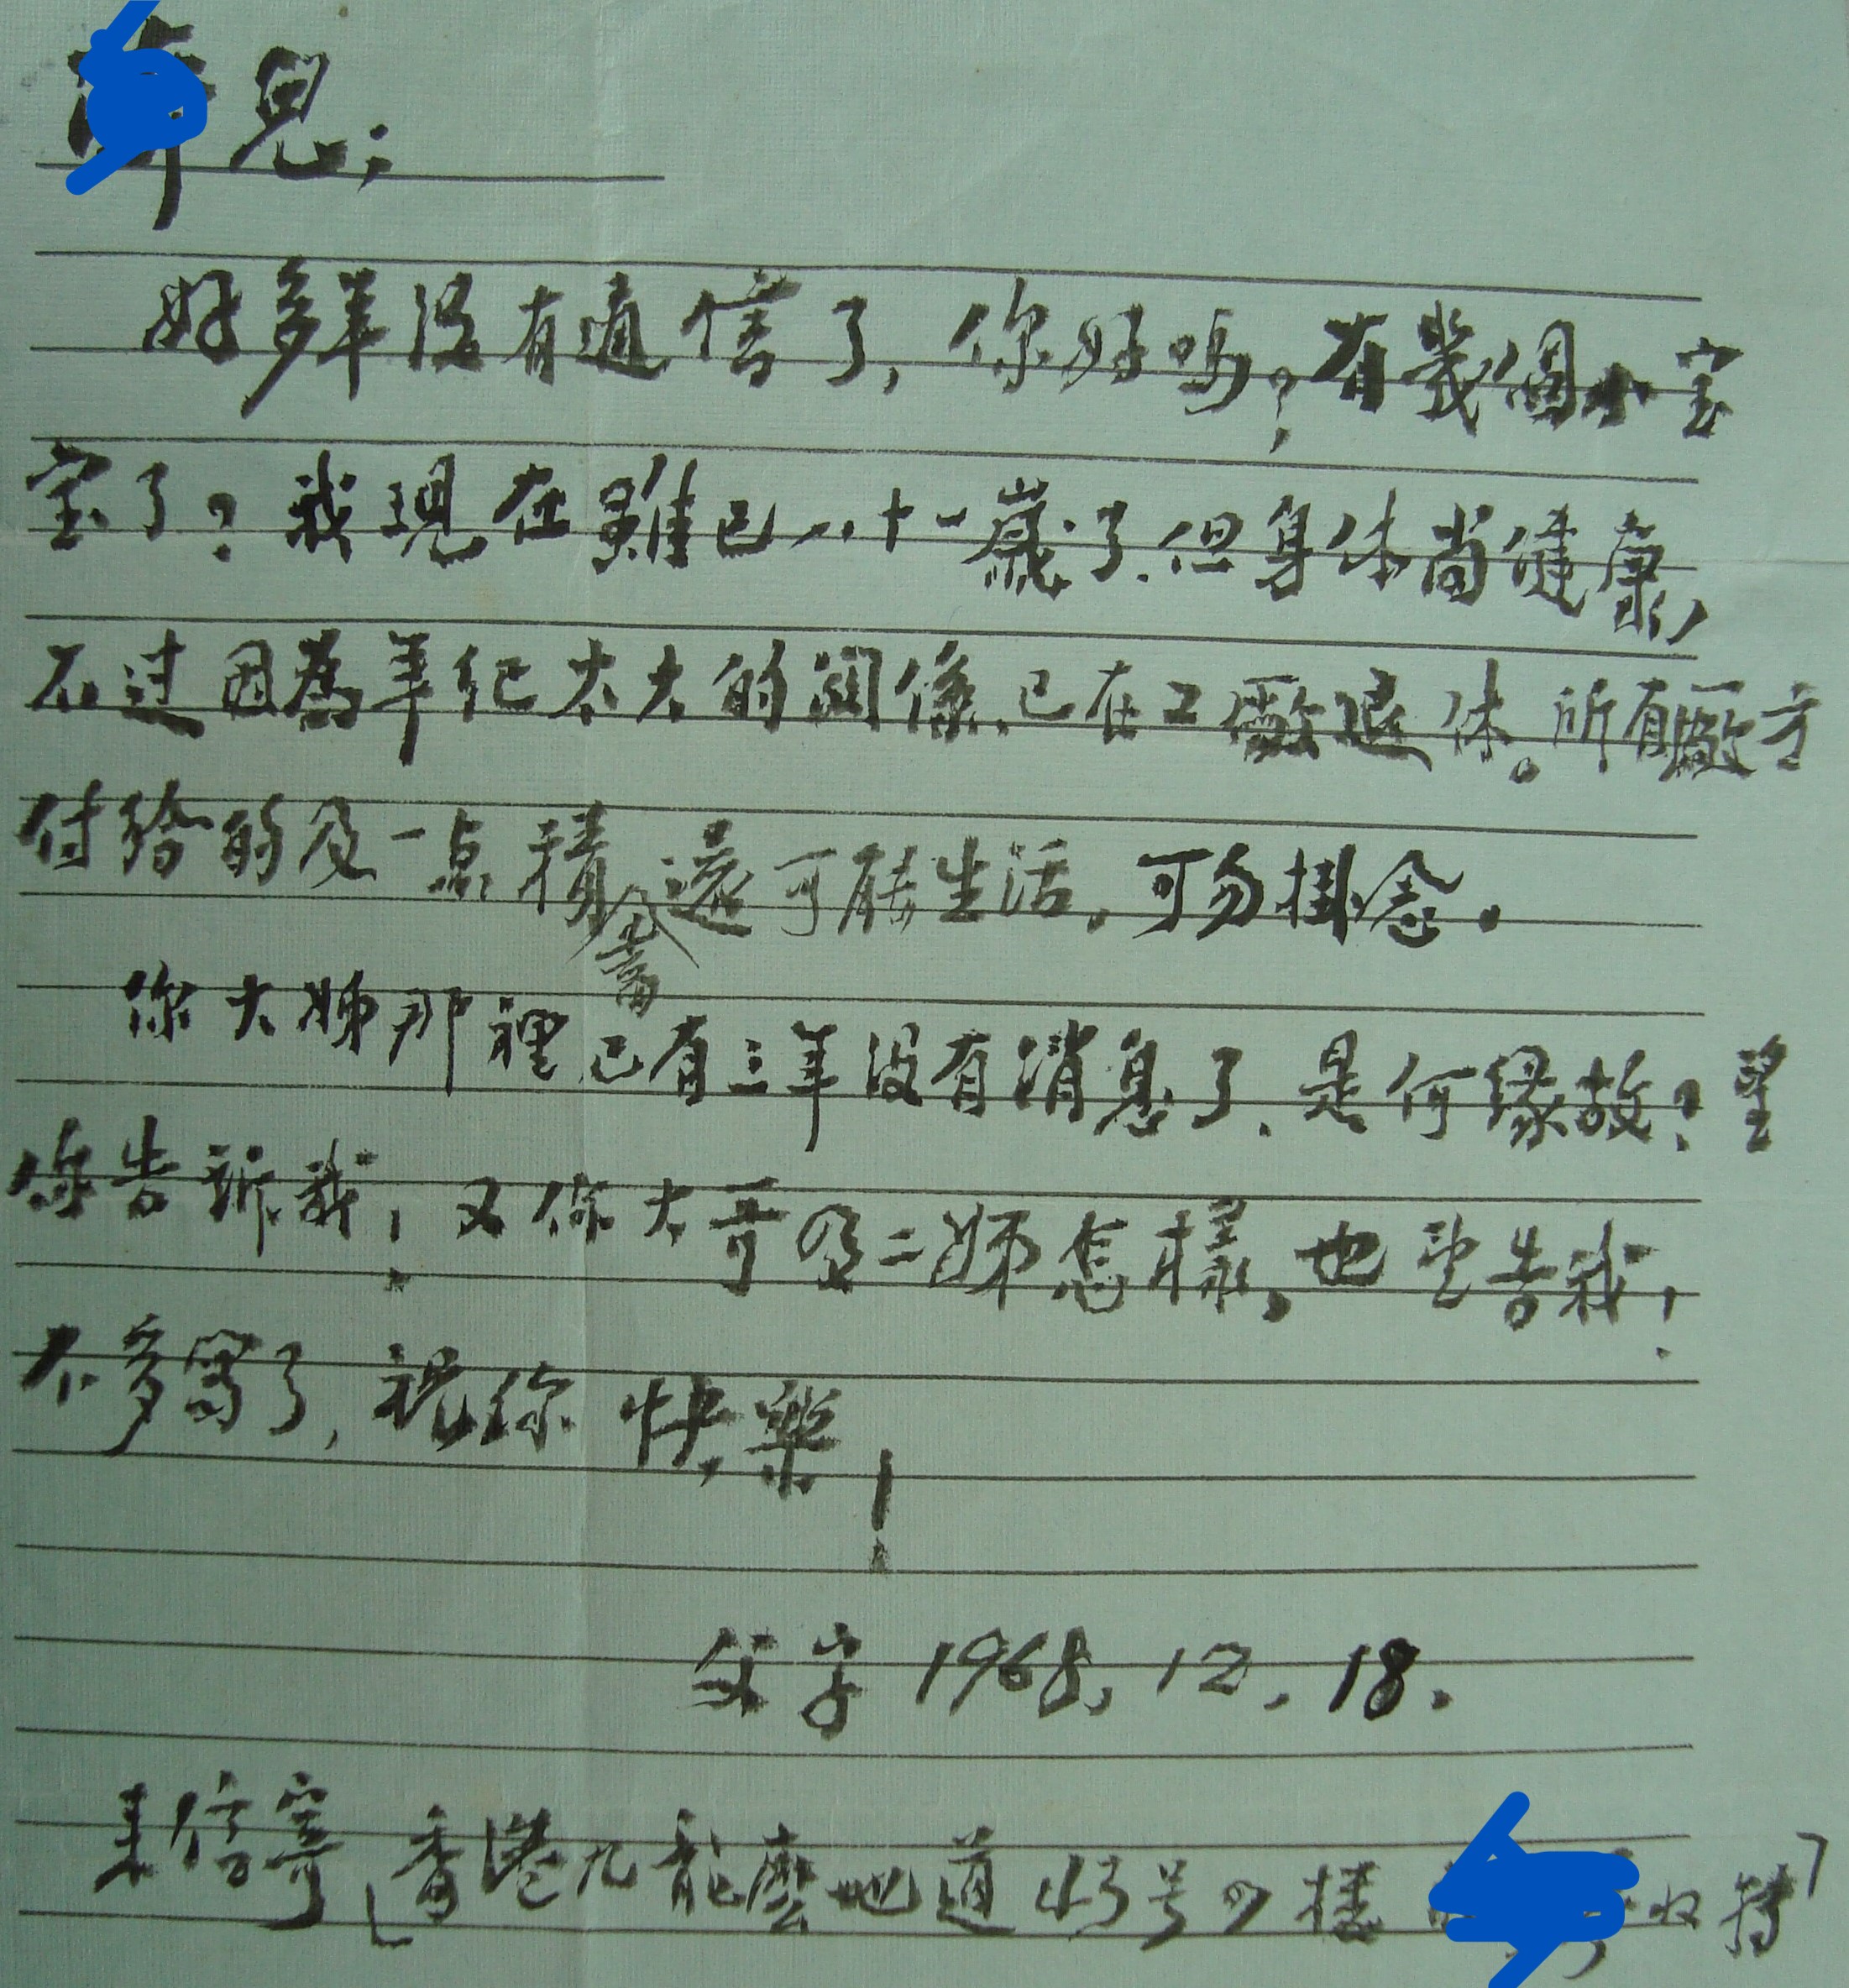 兒；
好多年沒有通信了，你好嗎？有幾個小宝
宝了？我現在雖已八十一歲了，但身体尚健康，
不过因為年纪太大的関係，已在工廠退休。所有廠方
付給的及一点積蓄還可能生活。可勿掛念。
你大姊那裡已有三年沒有消息了，是何緣故？望
你告訴我！又你大哥及二姊怎樣，也望告我！
不多寫了，祝你快樂！
父字 1968，12，18.
来信寄「香港九龍麼地道 号 樓 收轉」